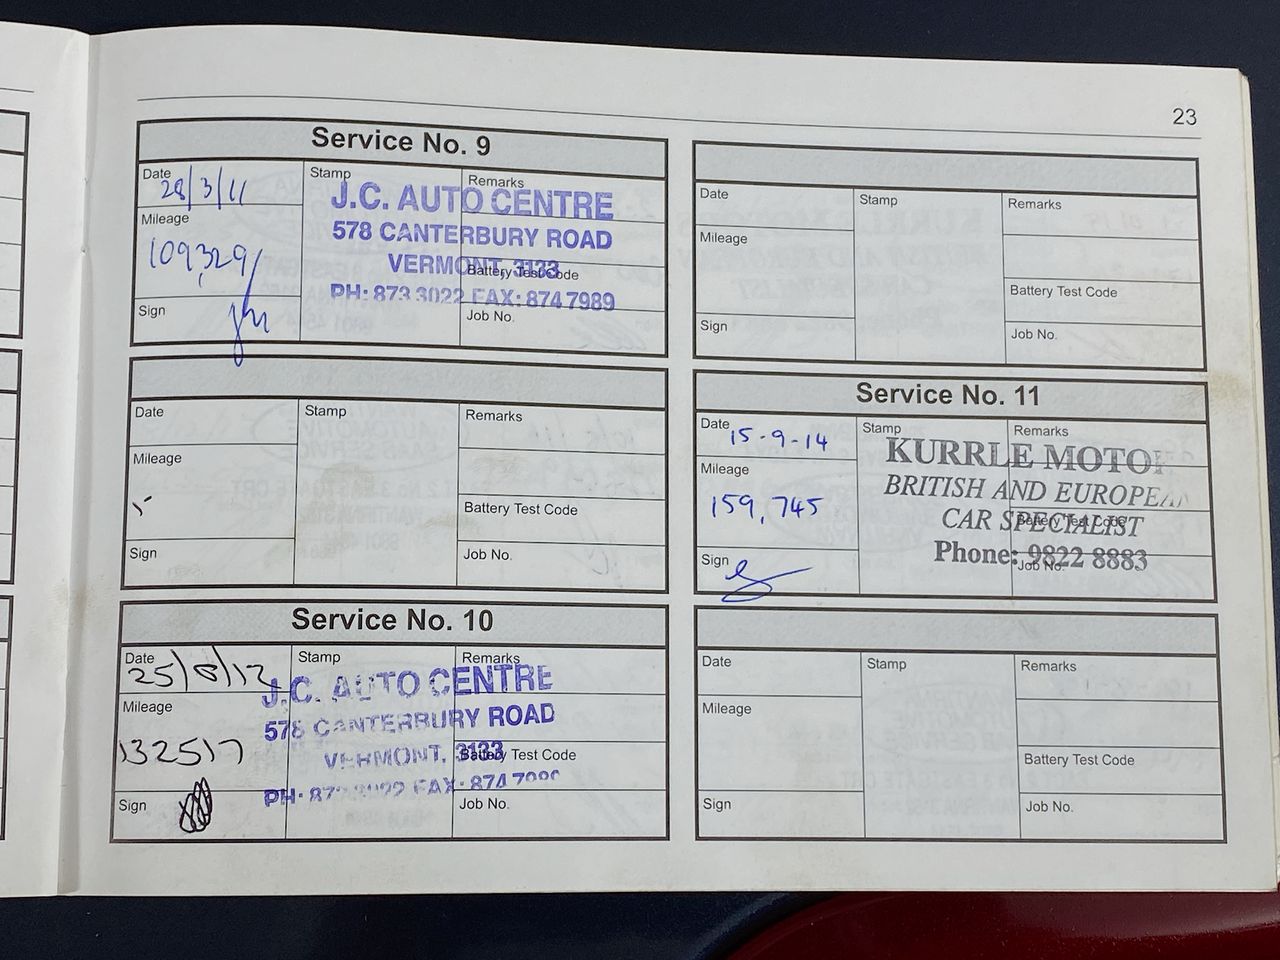 23
Service No. 9
Date 28/3/11
Stamp
Remarks
J.C. AUTO CENTRE
578 CANTERBURY ROAD
VERMONT, 3133
PH: 873 3022 FAX: 874 7989
Mileage
109329
Battery Test Code
Sign
Job No.
Date
Stamp
Remarks
Mileage
Battery Test Code
Sign
Job No.
Date
Stamp
Remarks
Mileage
Battery Test Code
Sign
Job No.
Service No. 11
Date 15-9-14
Stamp
Remarks
KURRLE MOTOR
BRITISH AND EUROPEAN
CAR SPECIALIST
Phone: 9822 8883
Mileage
159,745
Battery Test Code
Sign
Job No.
Service No. 10
Date 25/8/12
Stamp
Remarks
J.C. AUTO CENTRE
578 CANTERBURY ROAD
VERMONT, 3133
PH: 873 3022 FAX: 874 7989
Mileage
132517
Battery Test Code
Sign
Job No.
Date
Stamp
Remarks
Mileage
Battery Test Code
Sign
Job No.